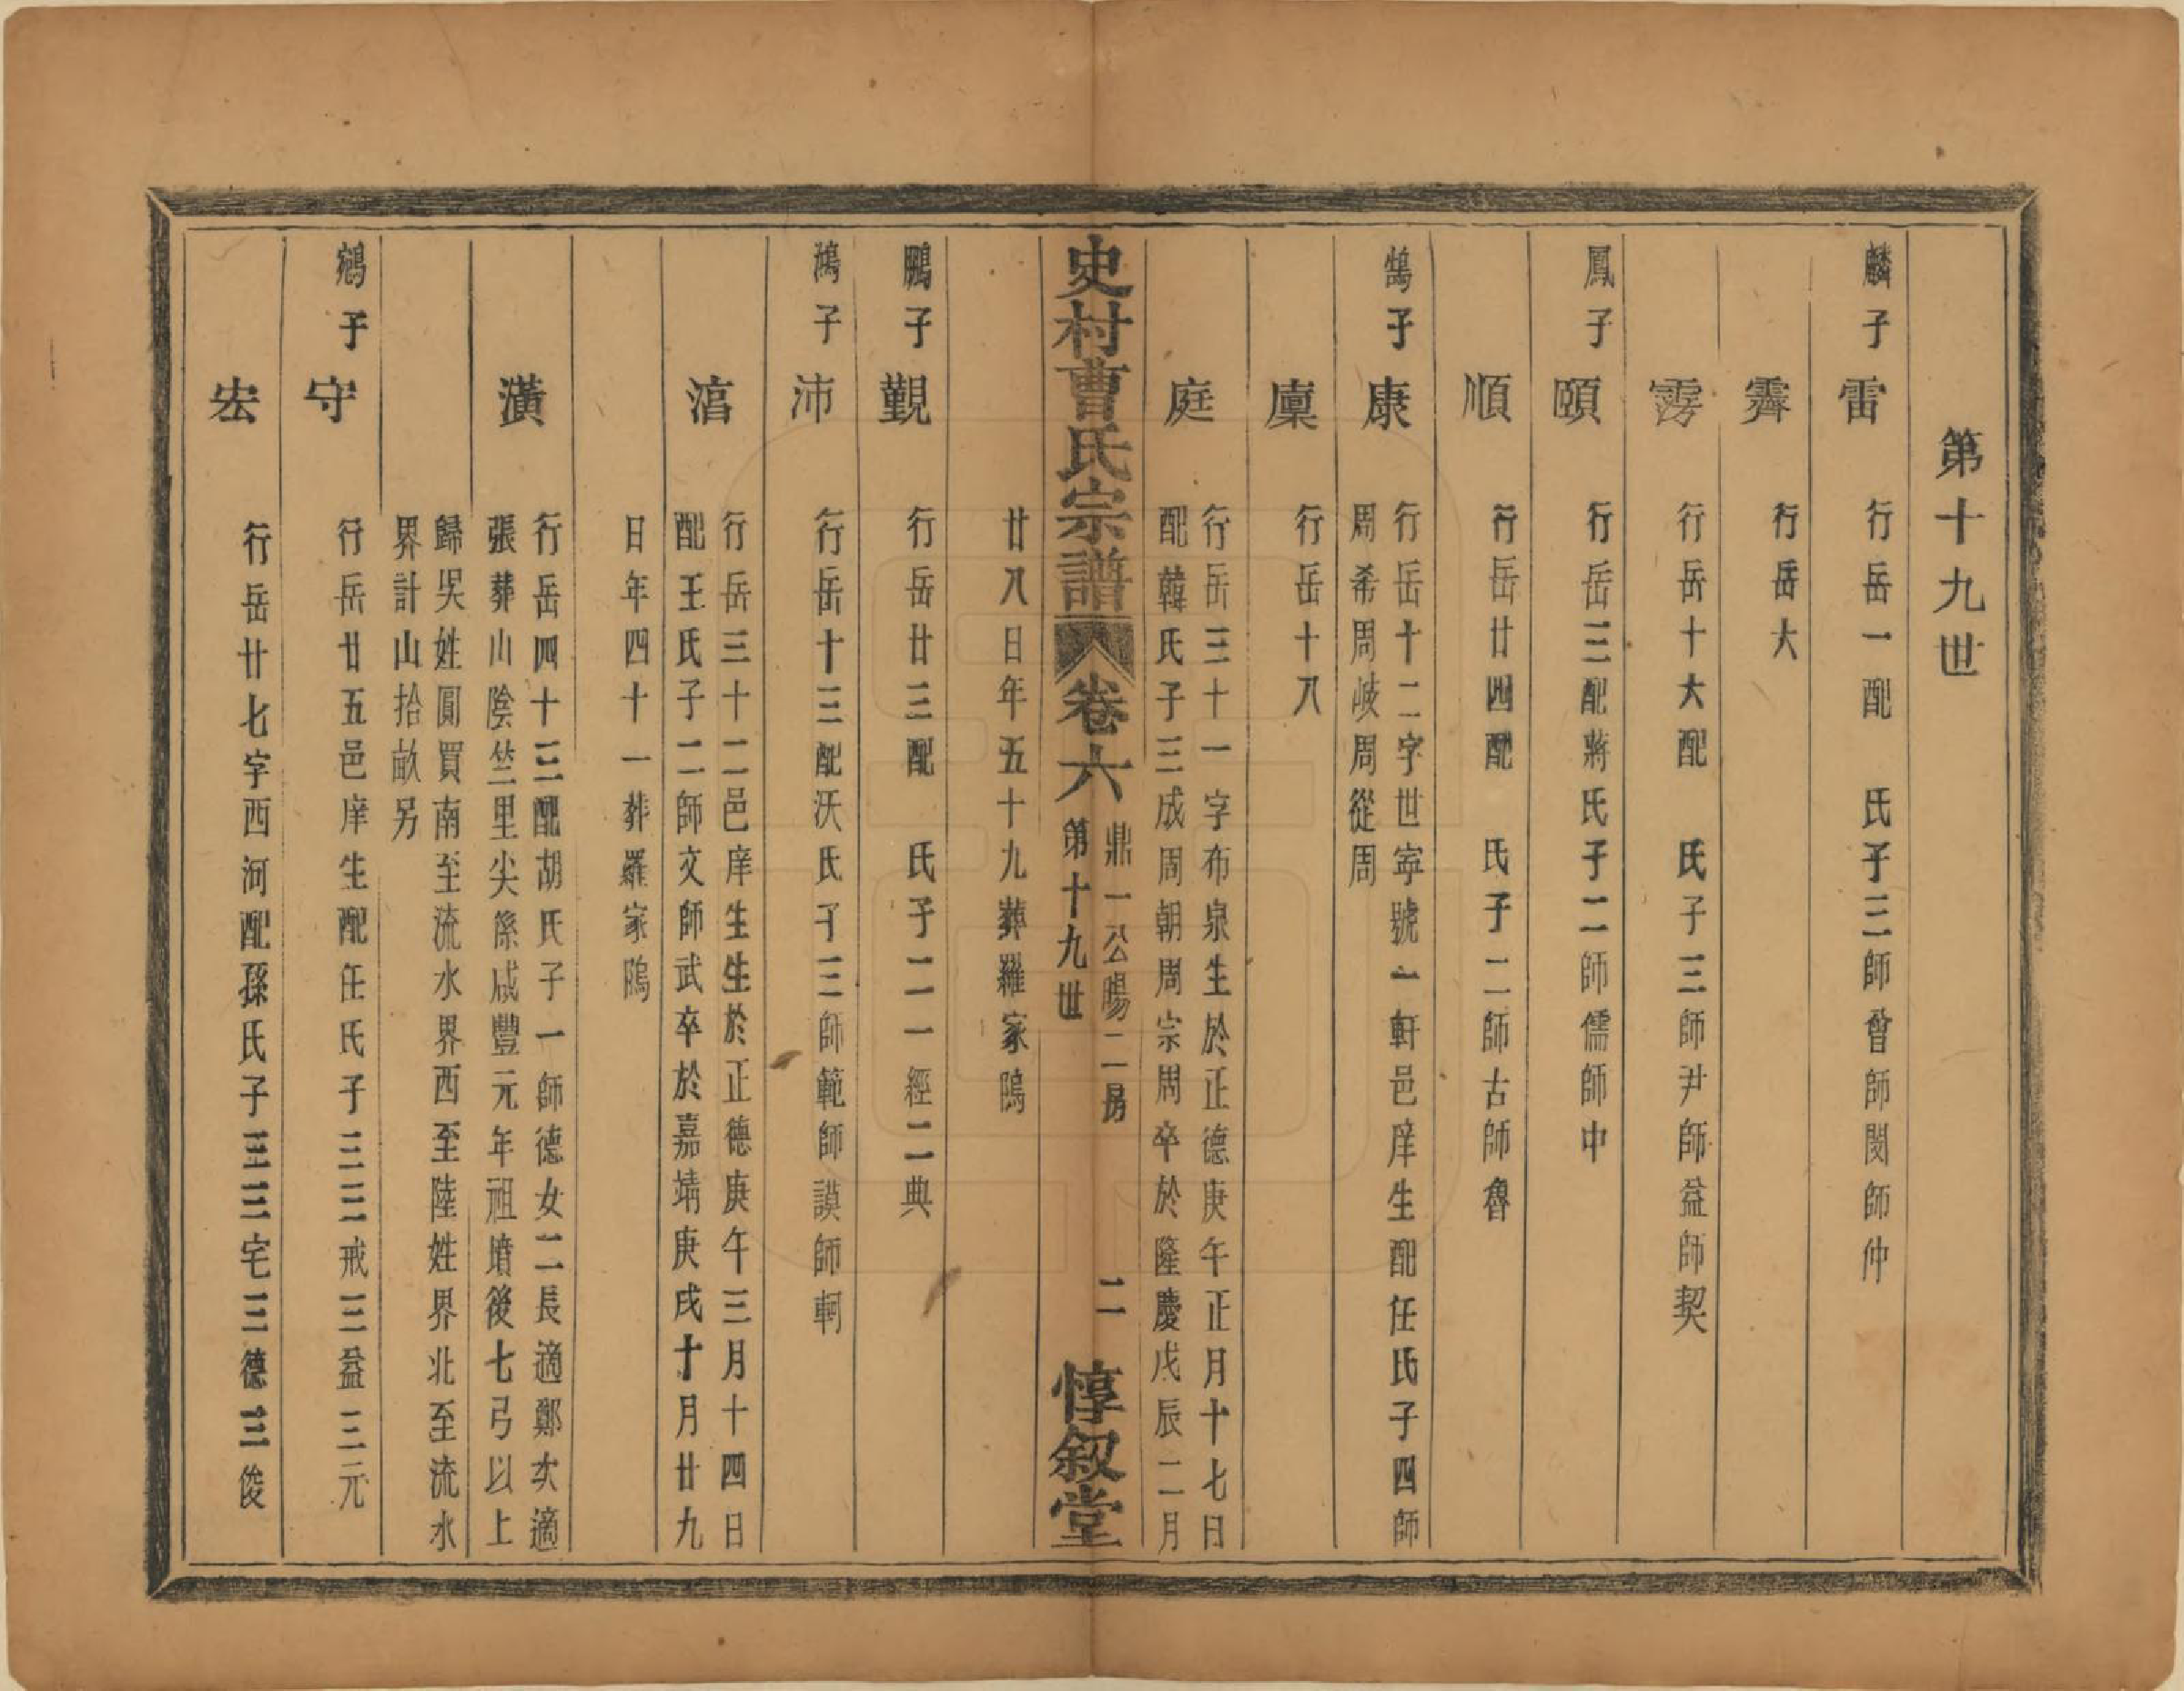 第十九世
麟子 雷 行岳一配 氏子三師曾師閔師仲
霽 行岳大
雱 行岳十大配 氏子三師尹師益師契
鳳子 頤 行岳三配蔣氏子二師儒師中
順 行岳廿四配 氏子二師古師魯
鵠子 康 行岳十二字世寧號一軒邑庠生配任氏子四師
周希周岐周從周
廩 行岳十八
庭 行岳三十一字布泉生於正德庚午正月十七日
配韓氏子三成周朝周宗周卒於隆慶戊辰二月
史村曹氏宗譜 卷六 鼎一公暘二房 第十九世 二 惇叙堂
廿八日年五十九葬羅家隖
鵬子 觀 行岳廿三配 氏子二一經二典
鴻子 沛 行岳十三配沃氏子三師範師謨師軻
湻 行岳三十二邑庠生生於正德庚午三月十四日
配王氏子二師文師武卒於嘉靖庚戌十月廿九
日年四十一葬羅家隖
潢 行岳四十三配胡氏子一師德女二長適鄭次適
張葬山陰竺里尖係咸豐元年祖墳後七弓以上
歸吳姓圓買南至流水界西至陸姓界北至流水
界計山拾畝另
鵷子 守 行岳廿五邑庠生配任氏子三三戒三益三元
宏 行岳廿七字西河配孫氏子三三宅三德三俊